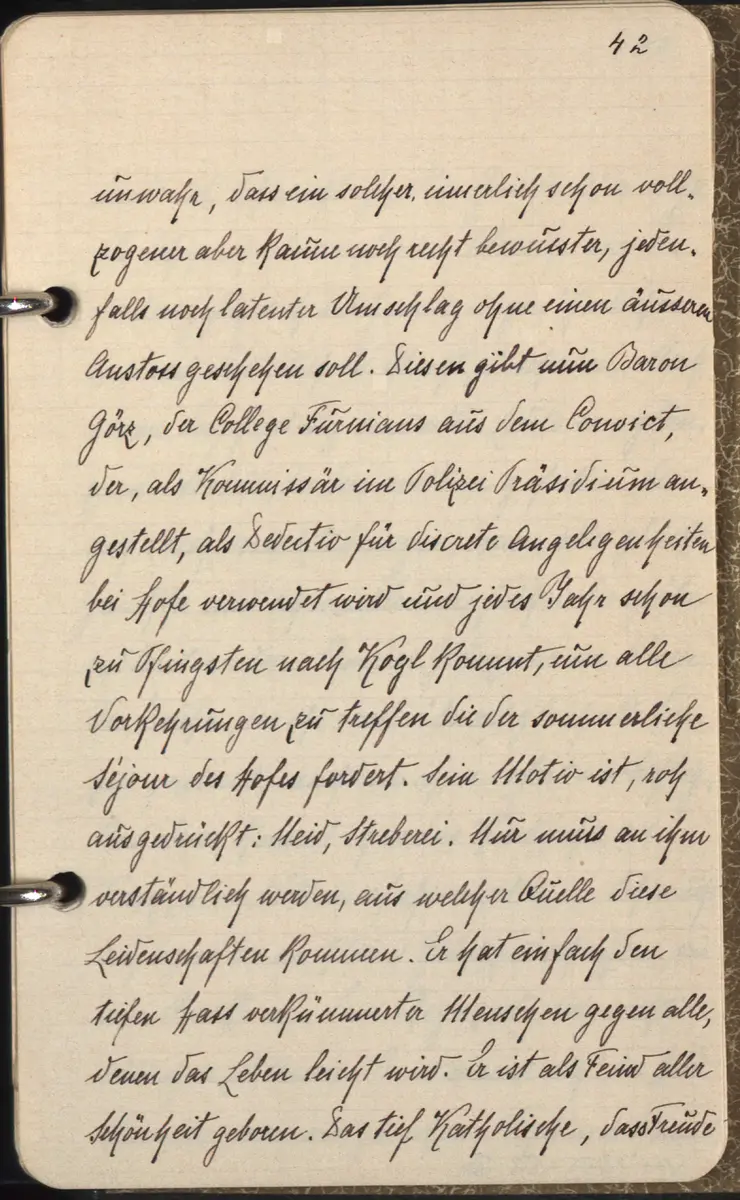 42
unwahr, dass ein solcher, innerlich schon voll-
zogener aber kaum noch recht bewuster, jeden-
falls noch latenter Umschlag ohne einen äusseren
Anstoss geschehen soll. Diesen gibt nun Baron
Görz, der College Furnians aus dem Convict,
der, als Kommissär im Polizei Präsidium an-
gestellt, als Dedectiv für discrete Angelegenheiten
bei Hofe verwendet wird und jedes Jahr schon
zu Pfingsten nach Kogl kommt, um alle
Vorkehrungen zu treffen die der sommerliche
Séjour des Hofes fordert. Sein Motiv ist, roh
ausgedrückt: Neid, Streberei. Nur muss an ihm
verständlich werden, aus welcher Quelle diese
Leidenschaften kommen. Er hat einfach den
tiefen Hass verkümmerter Menschen gegen alle,
denen das Leben leicht wird. Er ist als Feind aller
Schönheit geboren. Das tief Katholische, dass Freude